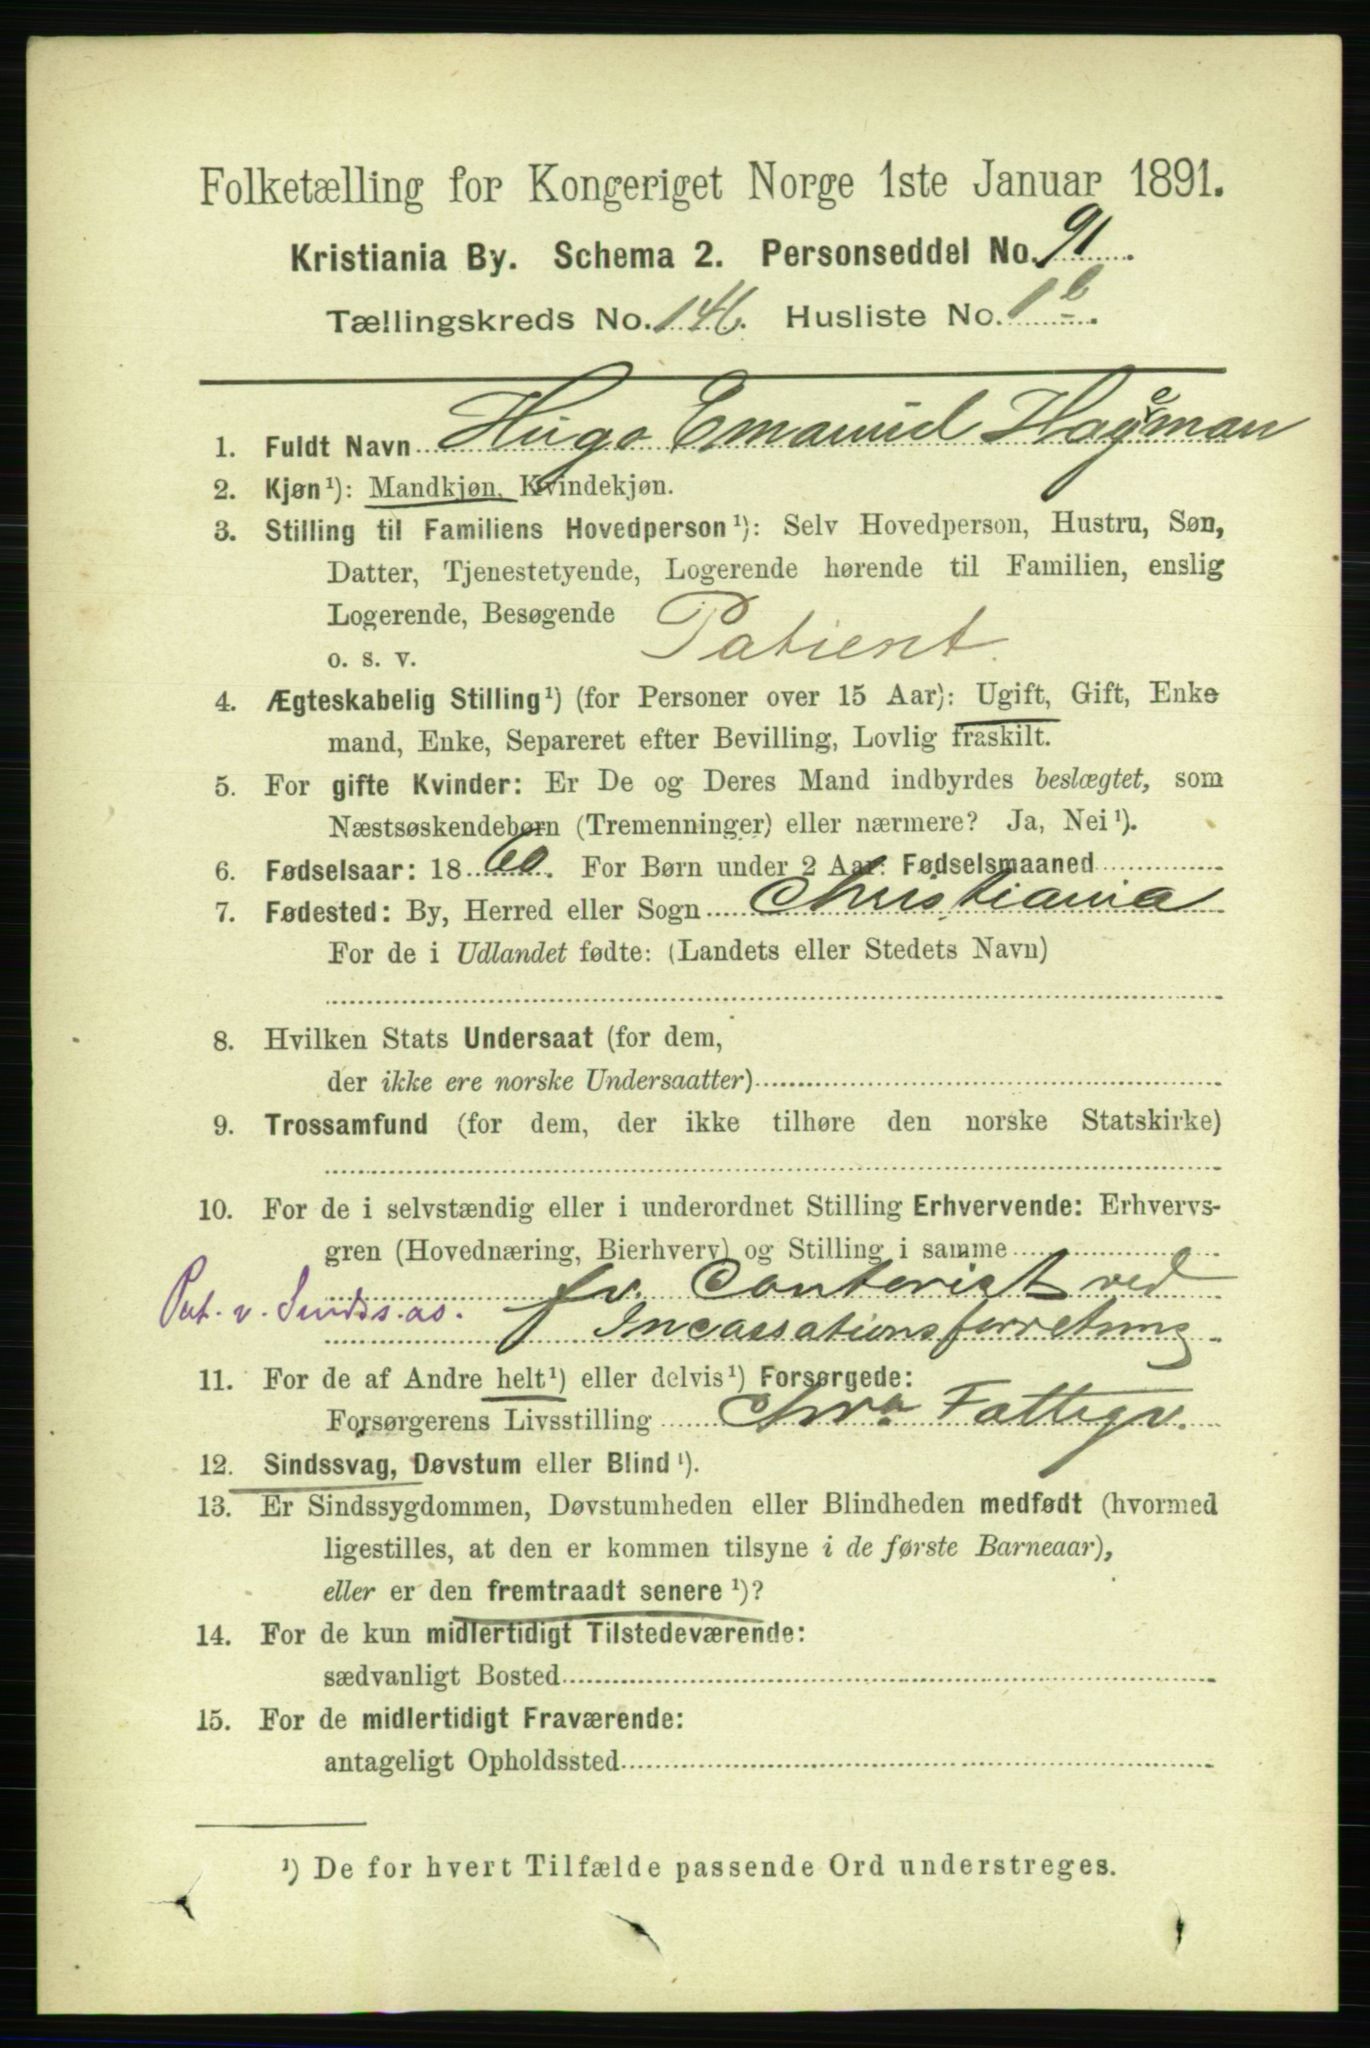 Folketælling for Kongeriget Norge 1ste Januar 1891.
Kristiania By. Schema 2. Personseddel No. 91.
Tællingskreds No. 146. Husliste No. 1 b.
1. Fuldt Navn Hugo Emanuel Hageman
2. Kjøn¹): Mandkjøn, Kvindekjøn.
3. Stilling til Familiens Hovedperson¹): Selv Hovedperson, Hustru, Søn,
Datter, Tjenestetyende, Logerende hørende til Familien, enslig
Logerende, Besøgende
o. s. v. Patient.
4. Ægteskabelig Stilling¹) (for Personer over 15 Aar): Ugift, Gift, Enke
mand, Enke, Separeret efter Bevilling, Lovlig fraskilt.
5. For gifte Kvinder: Er De og Deres Mand indbyrdes beslægtet, som
Næstsøskendebørn (Tremenninger) eller nærmere? Ja, Nei¹).
6. Fødselsaar: 18 60. For Børn under 2 Aar: Fødselsmaaned
7. Fødested: By, Herred eller Sogn Christiania
For de i Udlandet fødte: (Landets eller Stedets Navn)
8. Hvilken Stats Undersaat (for dem,
der ikke ere norske Undersaatter)
9. Trossamfund (for dem, der ikke tilhøre den norske Statskirke)
10. For de i selvstændig eller i underordnet Stilling Erhvervende: Erhvervs-
gren (Hovednæring, Bierhverv) og Stilling i samme
fv. Contorist ved
Pat. v. Sindss. as. Incassationsforretning
11. For de af Andre helt¹) eller delvis¹) Forsørgede:
Forsørgerens Livsstilling Chra Fattigv.
12. Sindssvag, Døvstum eller Blind¹).
13. Er Sindssygdommen, Døvstumheden eller Blindheden medfødt (hvormed
ligestilles, at den er kommen tilsyne i de første Barneaar),
eller er den fremtraadt senere¹)?
14. For de kun midlertidigt Tilstedeværende:
sædvanligt Bosted
15. For de midlertidigt Fraværende:
antageligt Opholdssted
¹) De for hvert Tilfælde passende Ord understreges.